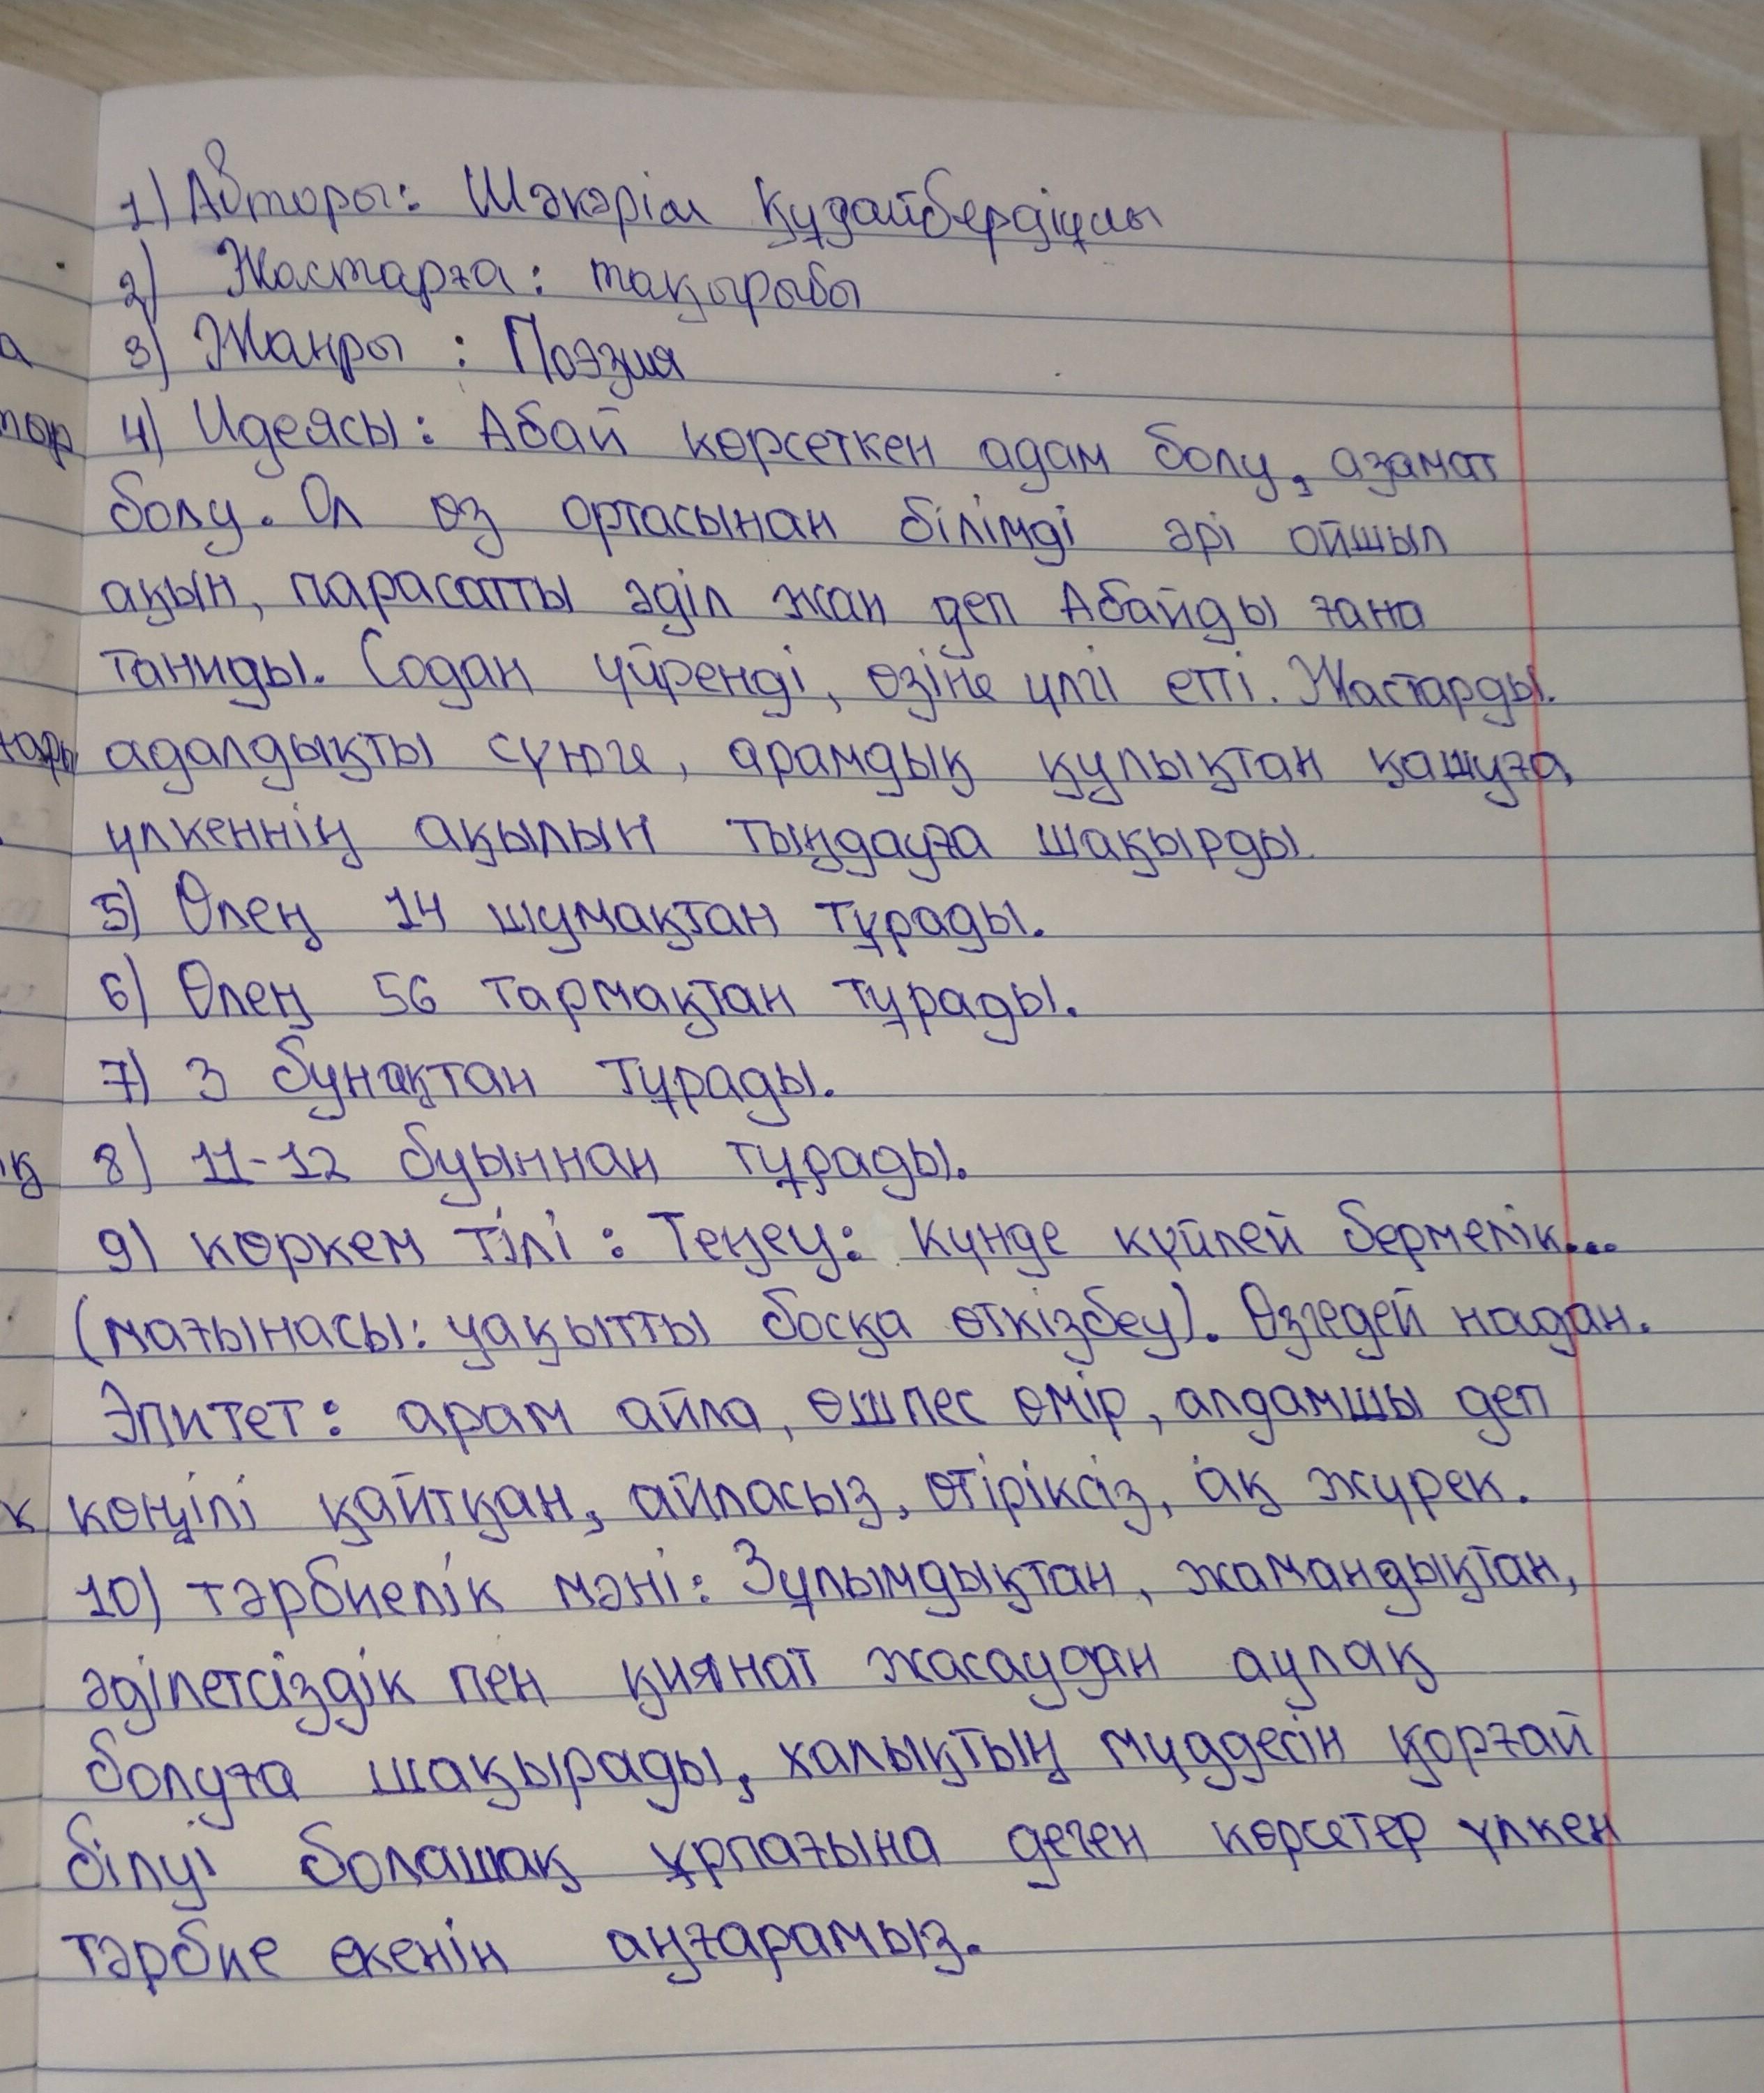 1) Авторы: Шәкәрім Құдайбердіұлы
2) Жастарға: тақырыбы
3) Жанры : Поэзия
4) Идеясы: Абай көрсеткен адам болу, азамат
болу. Ол өз ортасынан білімді әрі ойшыл
ақын, парасатты әділ жан деп Абайды ғана
таниды. Содан үйренді, өзіне үлгі етті. Жастарды.
адалдықты сүюге, арамдық құлықтан қашуға,
үлкеннің ақылын тыңдауға шақырды.
5) Өлең 14 шумақтан тұрады.
6) Өлең 56 тармақтан тұрады.
7) 3 бунақтан тұрады.
8) 11-12 буыннан тұрады.
9) көркем тілі : Теңеу: Күнде күйлей бермелік...
(мағынасы: уақытты босқа өткізбеу). Өзгедей надан.
Эпитет: арам айла, өшпес өмір, алдамшы деп
көңілі қайтқан, айласыз, өтіріксіз, ақ жүрек.
10) тәрбиелік мәні: Зұлымдықтан, жамандықтан,
әділетсіздік пен қиянат жасаудан аулақ
болуға шақырады, халықтың мүддесін қорғай
білуі болашақ ұрпағына деген көрсетер үлкен
тәрбие екенін аңғарамыз.